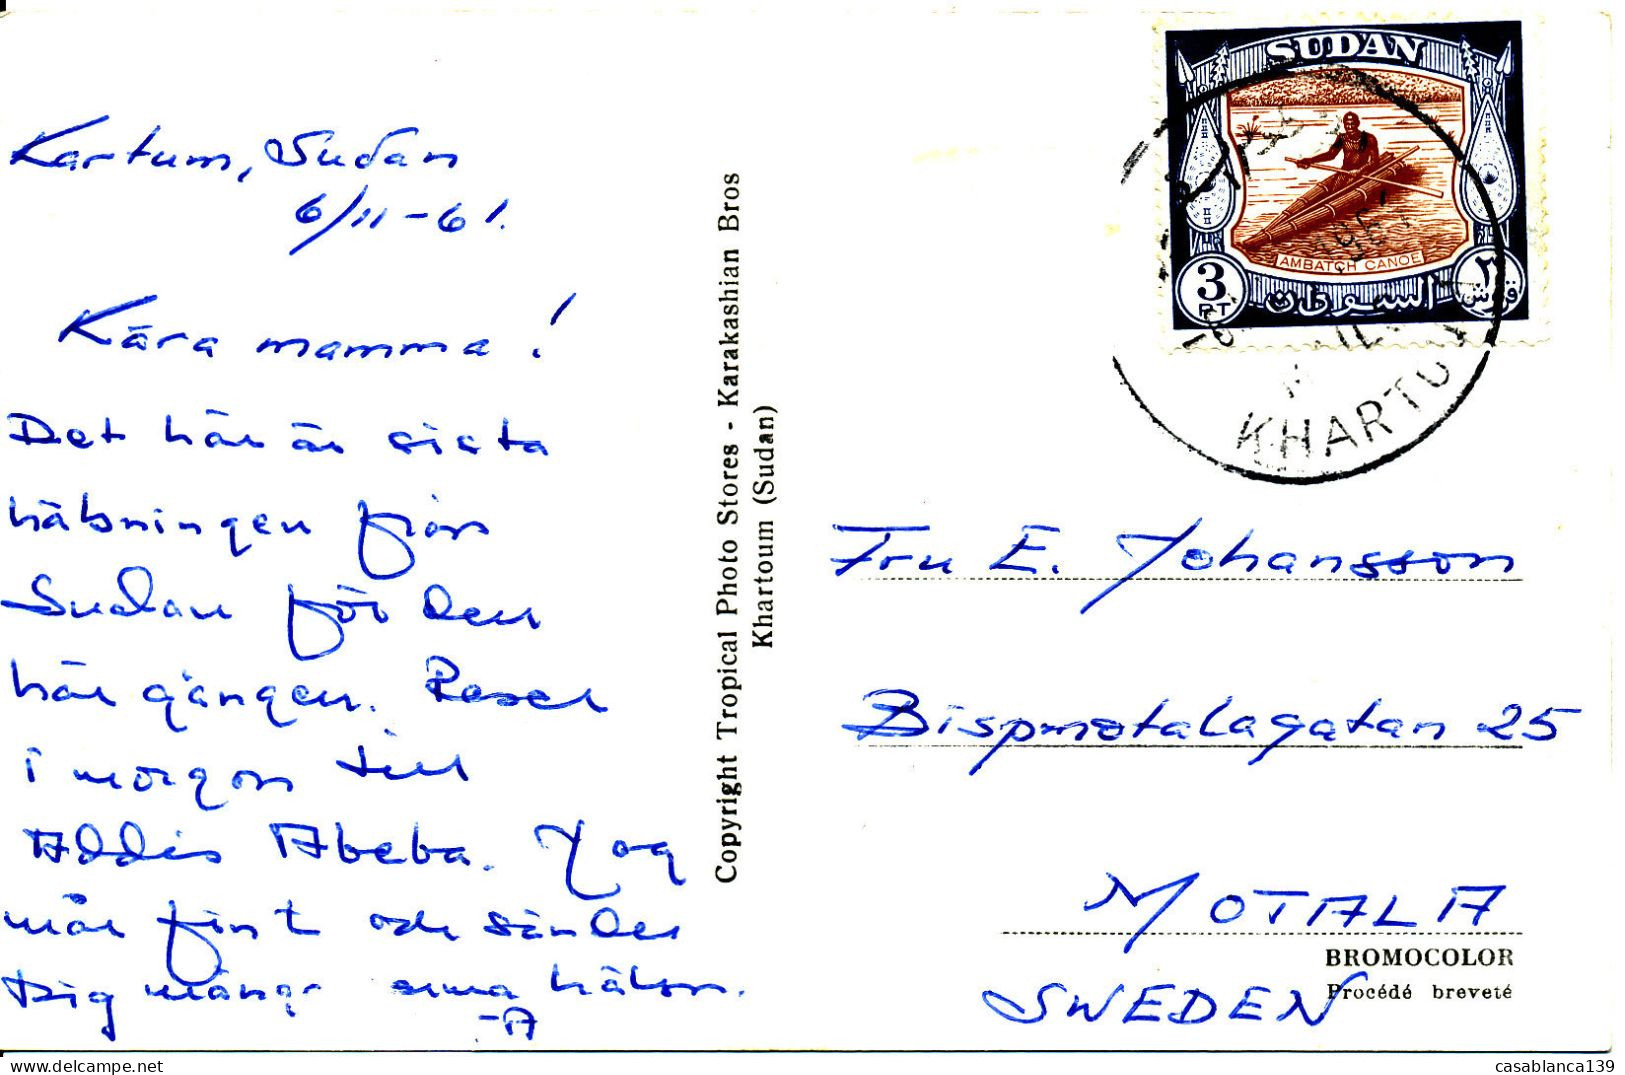 Kartum, Sudan
6/11-61.
Kära mamma!
Det här är sista
hälsningen från
Sudan för den
här gången. Reser
i morgon till
Addis Abeba. Jag
mår fint och sänder
Dig många
hälsn.
-A
Copyright Tropical Photo Stores - Karakashian Bros
Khartoum (Sudan)
SUDAN
AMBATCH CANOE
3
PT
السودان
٣
قروش
KHARTOUM
Fru E. Johansson
Bispmotalagatan 25
MOTALA
SWEDEN
BROMOCOLOR
Procédé breveté
casablanca139